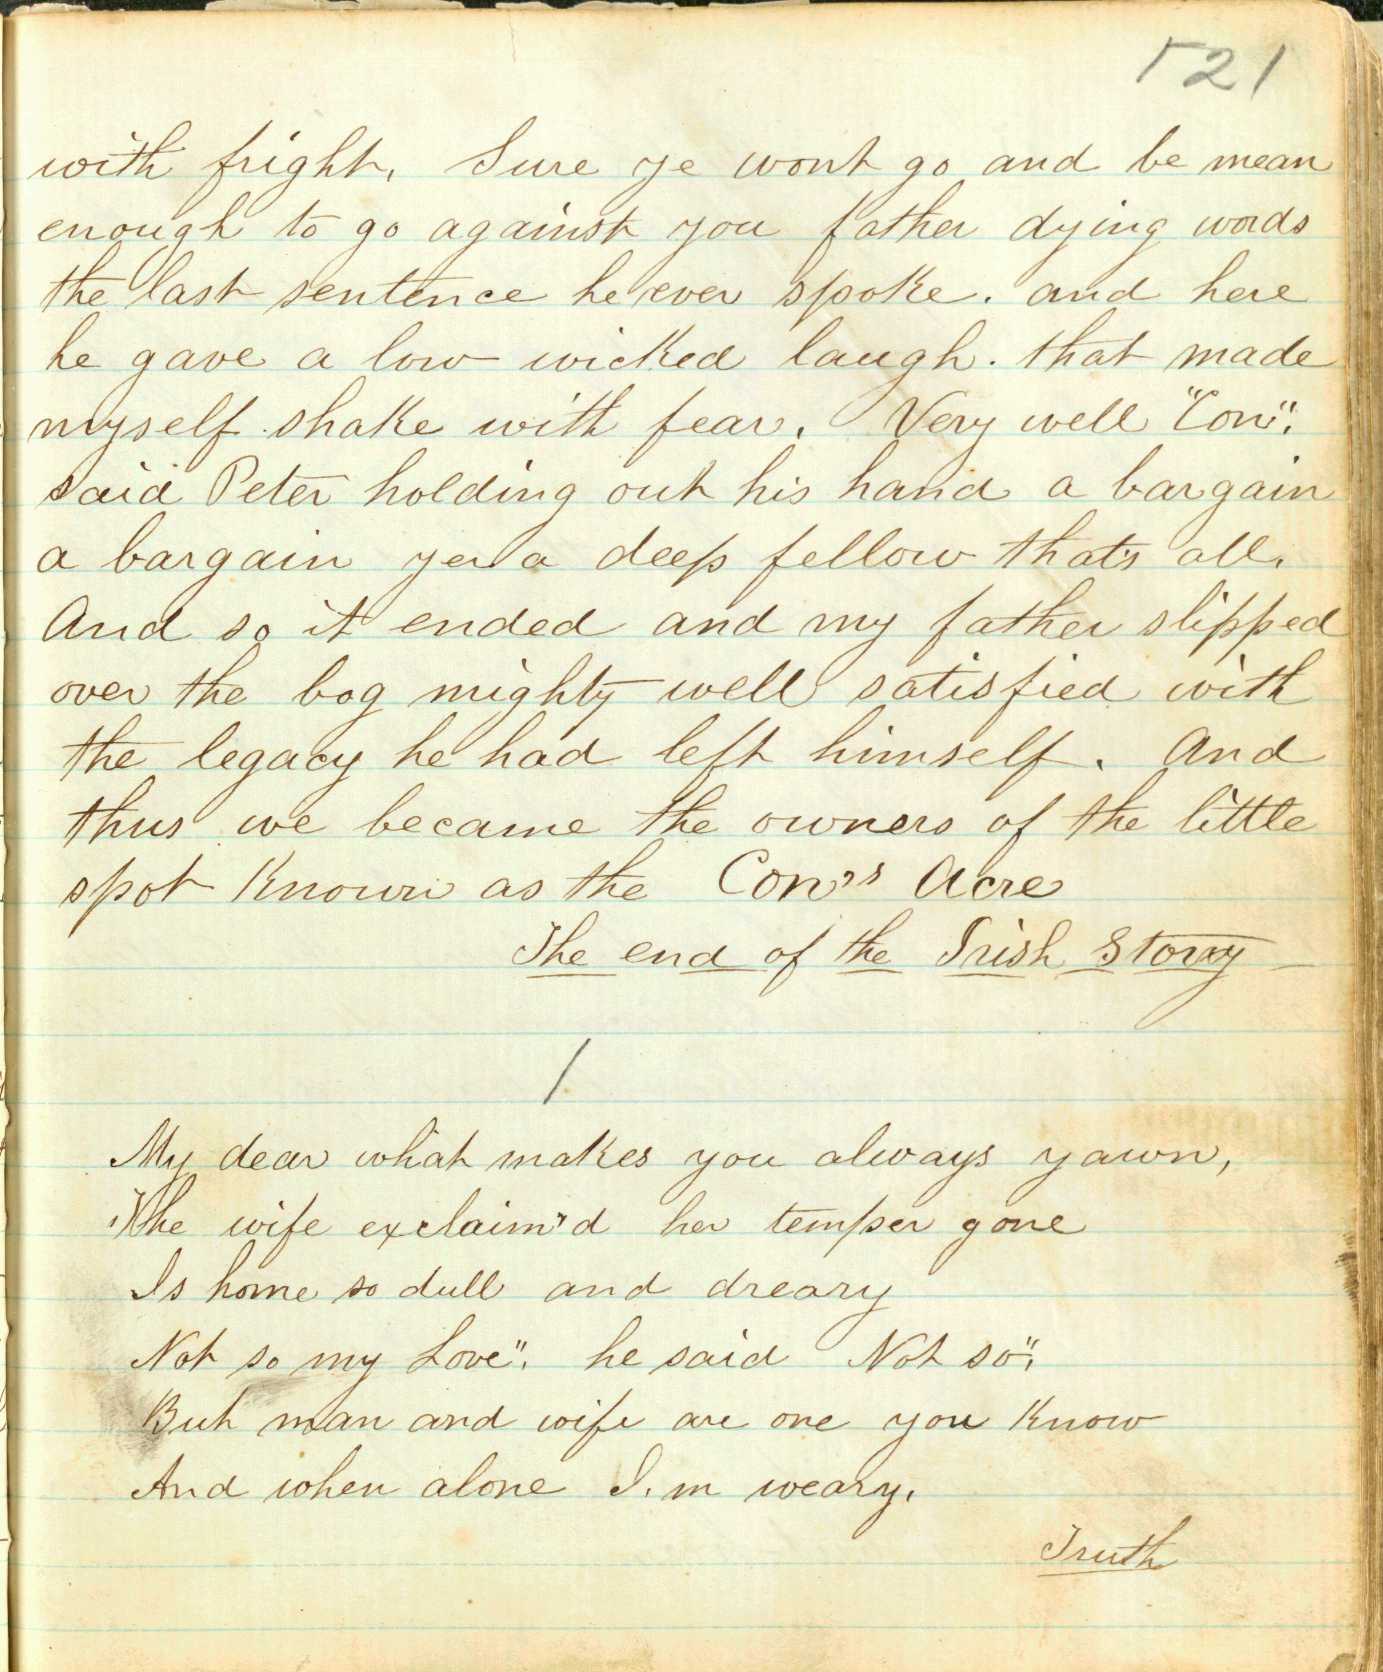 521
with fright, Sure ye wont go and be mean
enough to go against you father dying words
the last sentence he ever spoke. and here
he gave a low wicked laugh. that made
myself shake with fear. Very well "Con".
said Peter holding out his hand a bargain
a bargain yer a deep fellow that's all.
And so it ended and my father slipped
over the bog mighty well satisfied with
the legacy he had left himself. And
thus we became the owners of the little
spot Known as the Con's Acre
The end of the Irish Story
/
My dear what makes you always yawn,
The wife exclaim'd her temper gone
Is home so dull and dreary
Not so my Love". he said Not so".
But man and wife are one you Know
And when alone I.m weary.
Truth